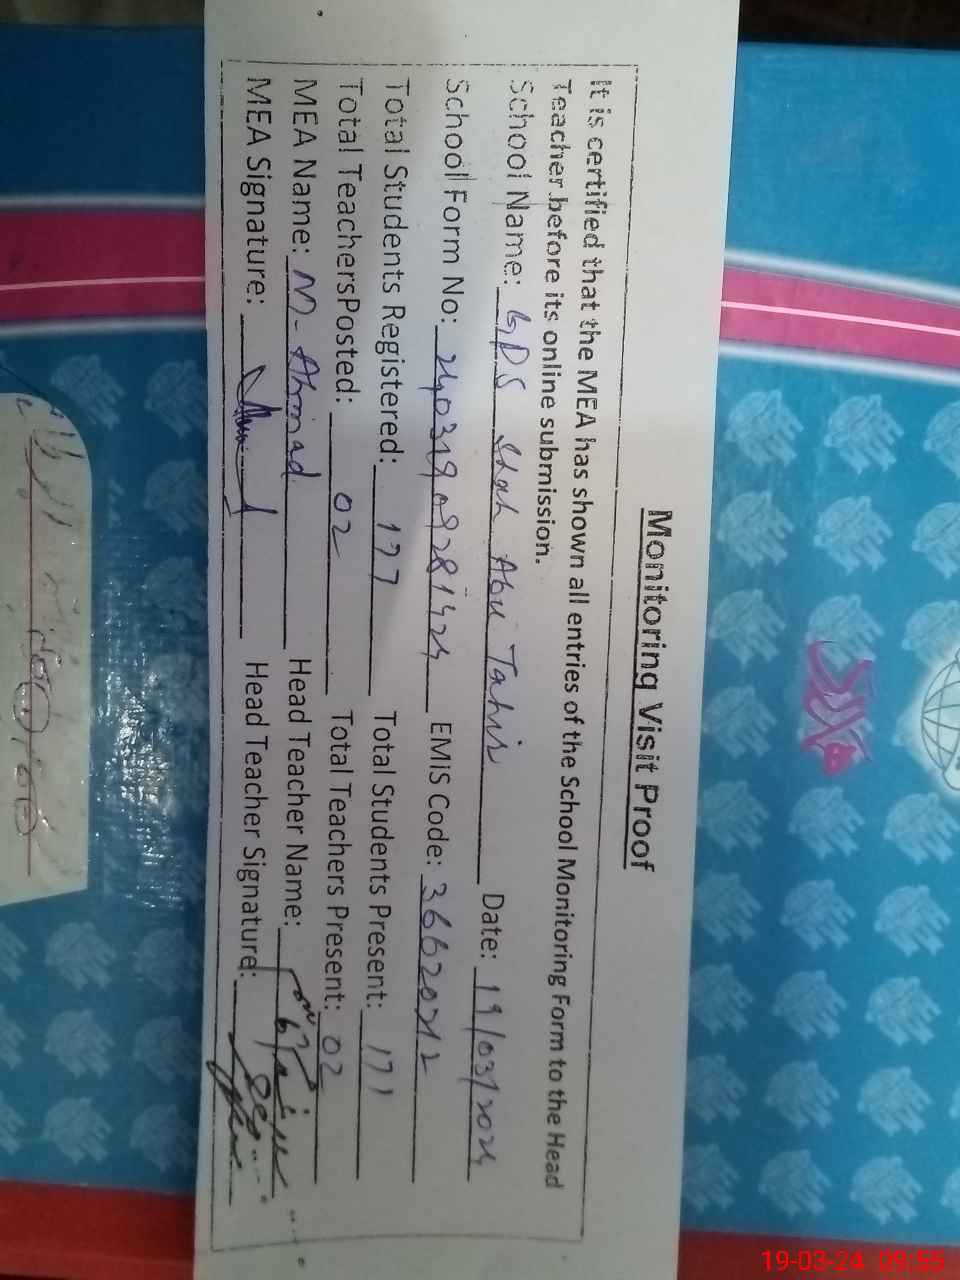 Monitoring Visit Proof
It is certified that the MEA has shown all entries of the School Monitoring Form to the Head
Teacher before its online submission.
School Name: GPS Shah Abu Tahir Date: 19/03/2024
School Form No: EMIS Code: 36620212
Total Students Registered: 177 Total Students Present: 171
Total TeachersPosted: 02 Total Teachers Present: 02
MEA Name: M- Ahmad Head Teacher Name:
MEA Signature: Head Teacher Signature:
19-03-24 09:55